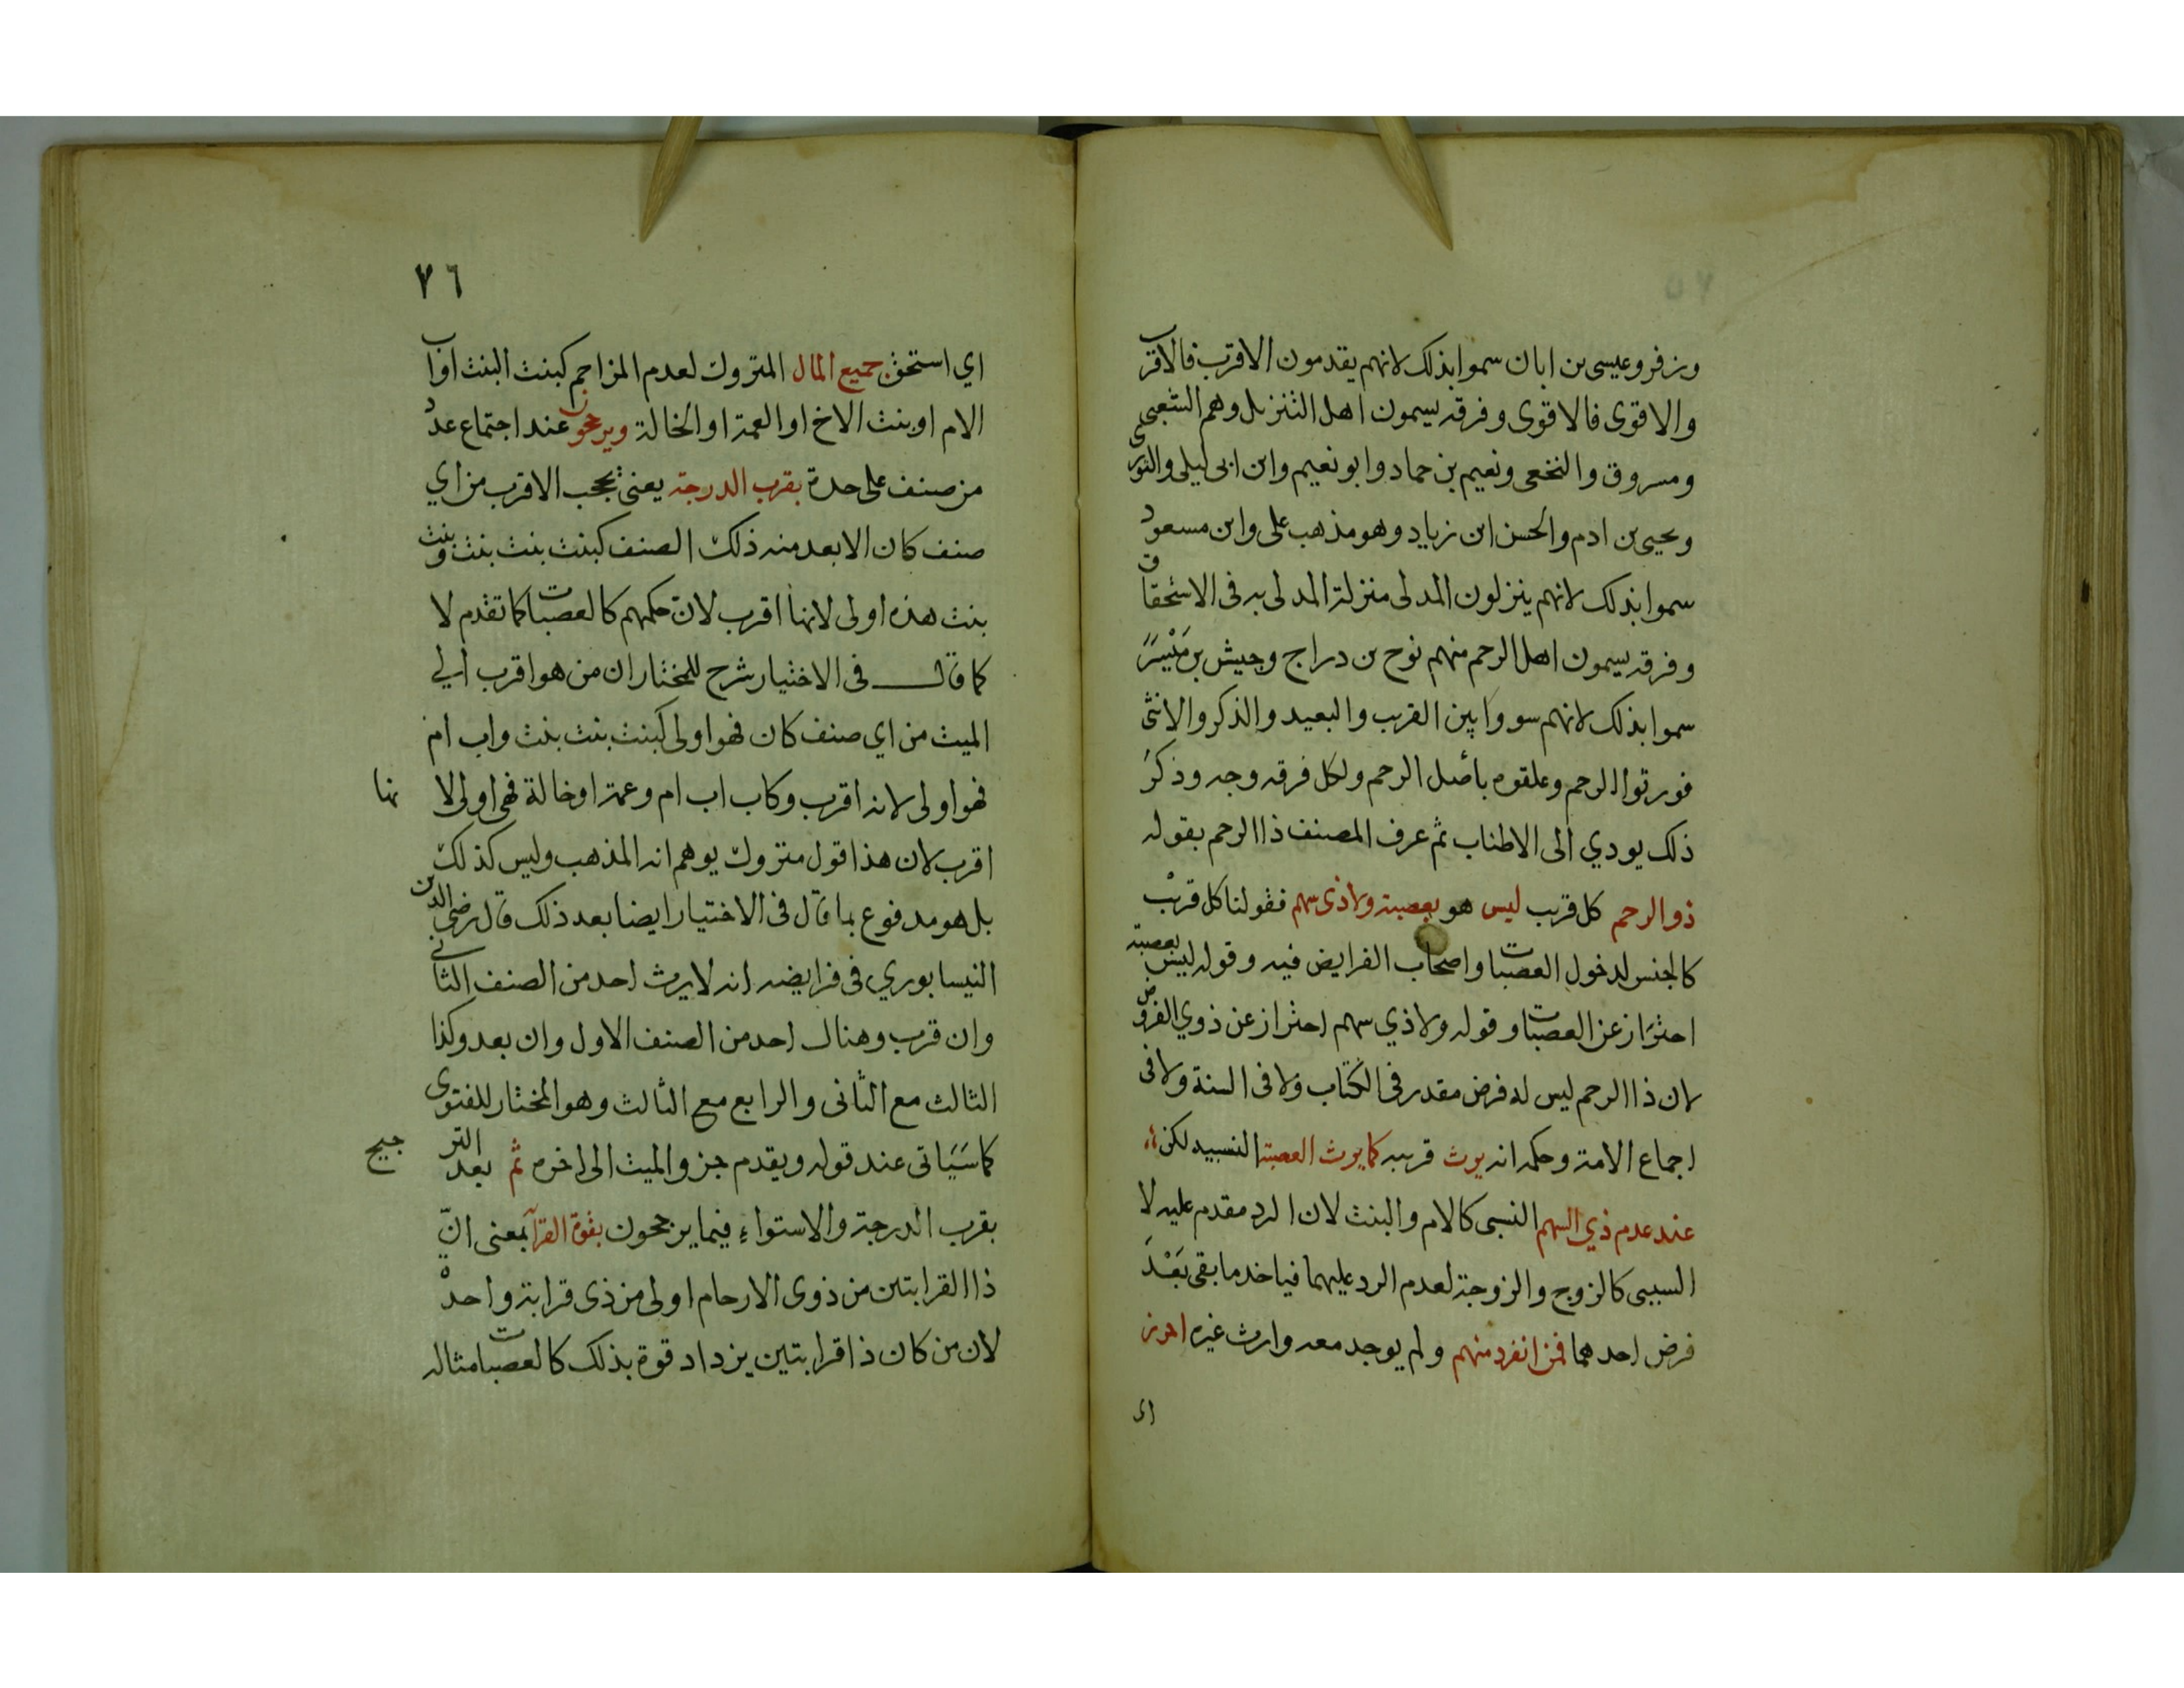 وزفر وعيسى بن ابان سموا بذلك لانهم يقدمون الاقرب فالاقرب
والاقوى فالاقوى وفرقه يسمون اهل التنزيل وهم الشعبى
ومسروق والنخعى ونعيم بن حماد وابو نعيم وابن ابى ليلى والثورى
ويحيى بن ادم والحسن ابن زياد وهو مذهب على وابن مسعود
سموا بذلك لانهم ينزلون المدلى منزلة المدلى به فى الاستحقاق
وفرقه يسمون اهل الرحم منهم نوح بن دراج وحبيش بن
سموا بذلك لانهم سووا بين القرب والبعيد والذكر والانثى
فورثوا الرحم وعلقوه باصل الرحم ولكل فرقه وجه وذكر
ذلك يودي الى الاطناب ثم عرف المصنف ذا الرحم بقوله
ذو الرحم كل قريب ليس هو بعصبة ولا ذى سهم فقولنا كل قريب
كالجنس لدخول العصبات واصحاب الفرايض فيه وقوله ليس بعصبة
احتراز عن العصبات وقوله ولا ذي سهم احتراز عن ذوي الفروض
لان ذا الرحم ليس له فرض مقدر فى الكتاب ولا فى السنة ولا فى
اجماع الامة وحكمه انه يورث قريبه كما يورث العصبة النسبيه لكن
عند عدم ذي السهم النسبى كالام والبنت لان الرد مقدم عليه لا
السببى كالزوج والزوجة لعدم الرد عليهما فياخد ما بقى بَعْدَ
فرض احدهما فمن انفرد منهم ولم يوجد معه وارث غيره احرز
اى
٧٦
اي استحق جميع المال المتروك لعدم المزاحم كبنت البنت او اب
الام او بنت الاخ او العمة او الخالة ويرجحون عند اجتماع عدد
من صنف على حدة بقرب الدرجة يعنى يحجب الاقرب من اي
صنف كان الابعد منه ذلك الصنف كبنت بنت بنت وبنت
بنت هذه اولى لانها اقرب لان حكمهم كالعصبات كما تقدم لا
كما قال فى الاختيار شرح للمختار ان من هو اقرب الي
الميت من اي صنف كان فهو اولى كبنت بنت بنت واب ام
فهو اولى لانه اقرب وكاب اب ام وعمة او خالة فهى اولى لانها
اقرب لان هذا قول متروك يوهم انه المذهب وليس كذلك
بل هو مدفوع بما قال فى الاختيار ايضا بعد ذلك قال رضى الدين
النيسابوري فى فرايضه انه لا يرث احد من الصنف الثانى
وان قرب وهناك احد من الصنف الاول وان بعد وكذا
الثالث مع الثانى والرابع مع الثالث وهو المختار للفتوى
كما سَيَاتى عند قوله ويقدم جزو الميت الى اخره ثم بعد الترجيح
بقرب الدرجة والاستواء فيها يرجحون بقوة القرآبة معنى انّ
ذا القرابتين من ذوى الارحام اولى من ذى قرابة واحدة
لان من كان ذا قرابتين يزداد قوة بذلك كالعصبات مثاله